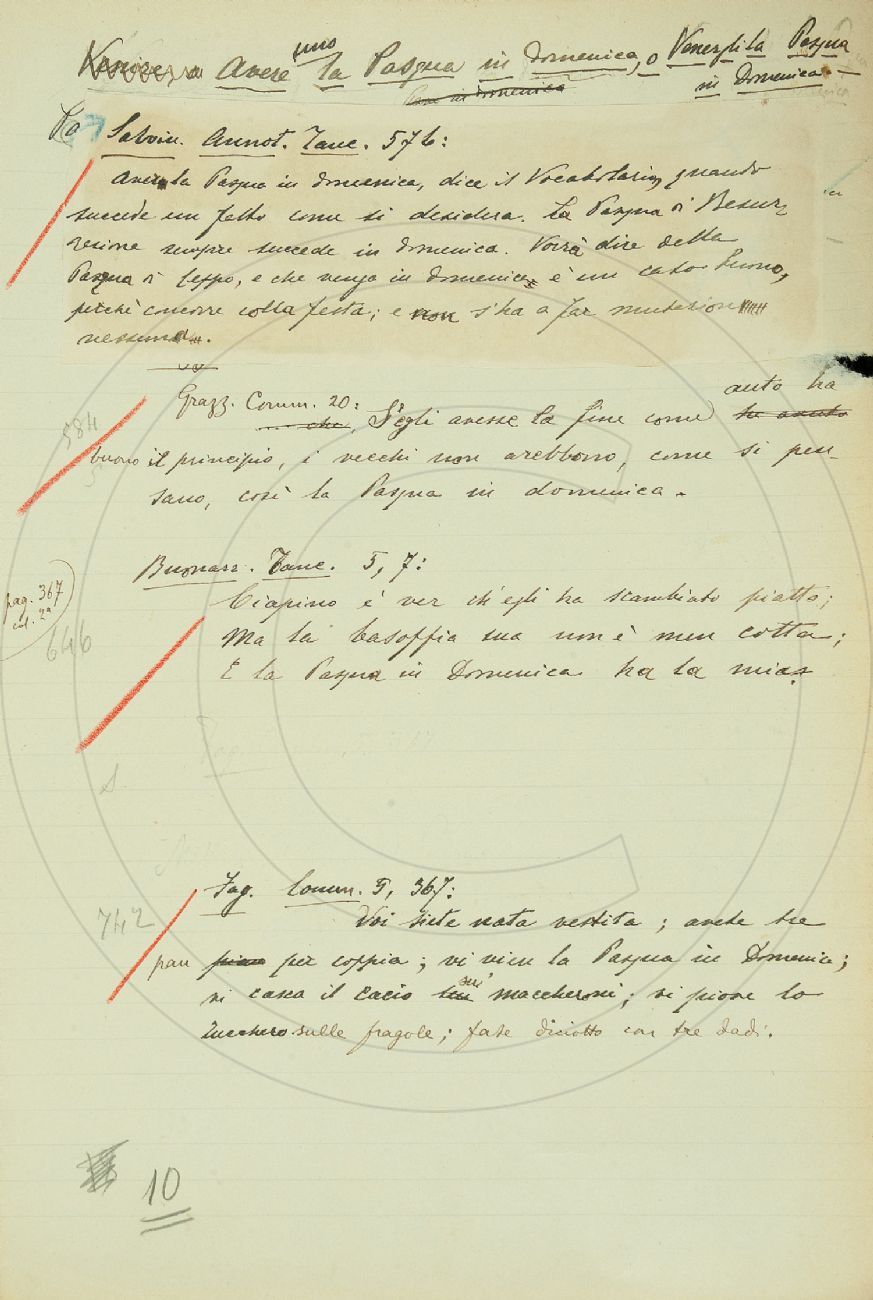 Avere uno la Pasqua in Domenica, o Venirgli la Pasqua
in Domenica
Salvin. Annot. Tanc. 576:
Aver la Pasqua in domenica, dice il Vocabolario, quando
succede un fatto come si desidera. La Pasqua di Resur-
rezione sempre succede in domenica. Vorrà dire della
Pasqua di Ceppo, e che venga in domenica è un caso buono,
perchè concorre colla festa; e non s'ha a far mutazione
nessuna.
584
Grazz. Comm. 20:
S'egli avesse la fine come ha auto
buono il principio, i vecchi non arebbono, come si pen-
sano, così la Pasqua in domenica.
pag. 367
col. 2ª
646
Buonarr. Tanc. 5, 7:
Ciapino è ver ch'egli ha scambiato piatto;
Ma la basoffia sua non è men cotta;
E la Pasqua in Domenica ha la mia.
742
Fag. Comm. 5, 367:
Voi siete nata vestita; avete tre
pan per coppia; vi vien la Pasqua in Domenica;
vi casca il cacio sui maccheroni; vi piove lo
zucchero sulle fragole; fate diciotto con tre dadi.
10